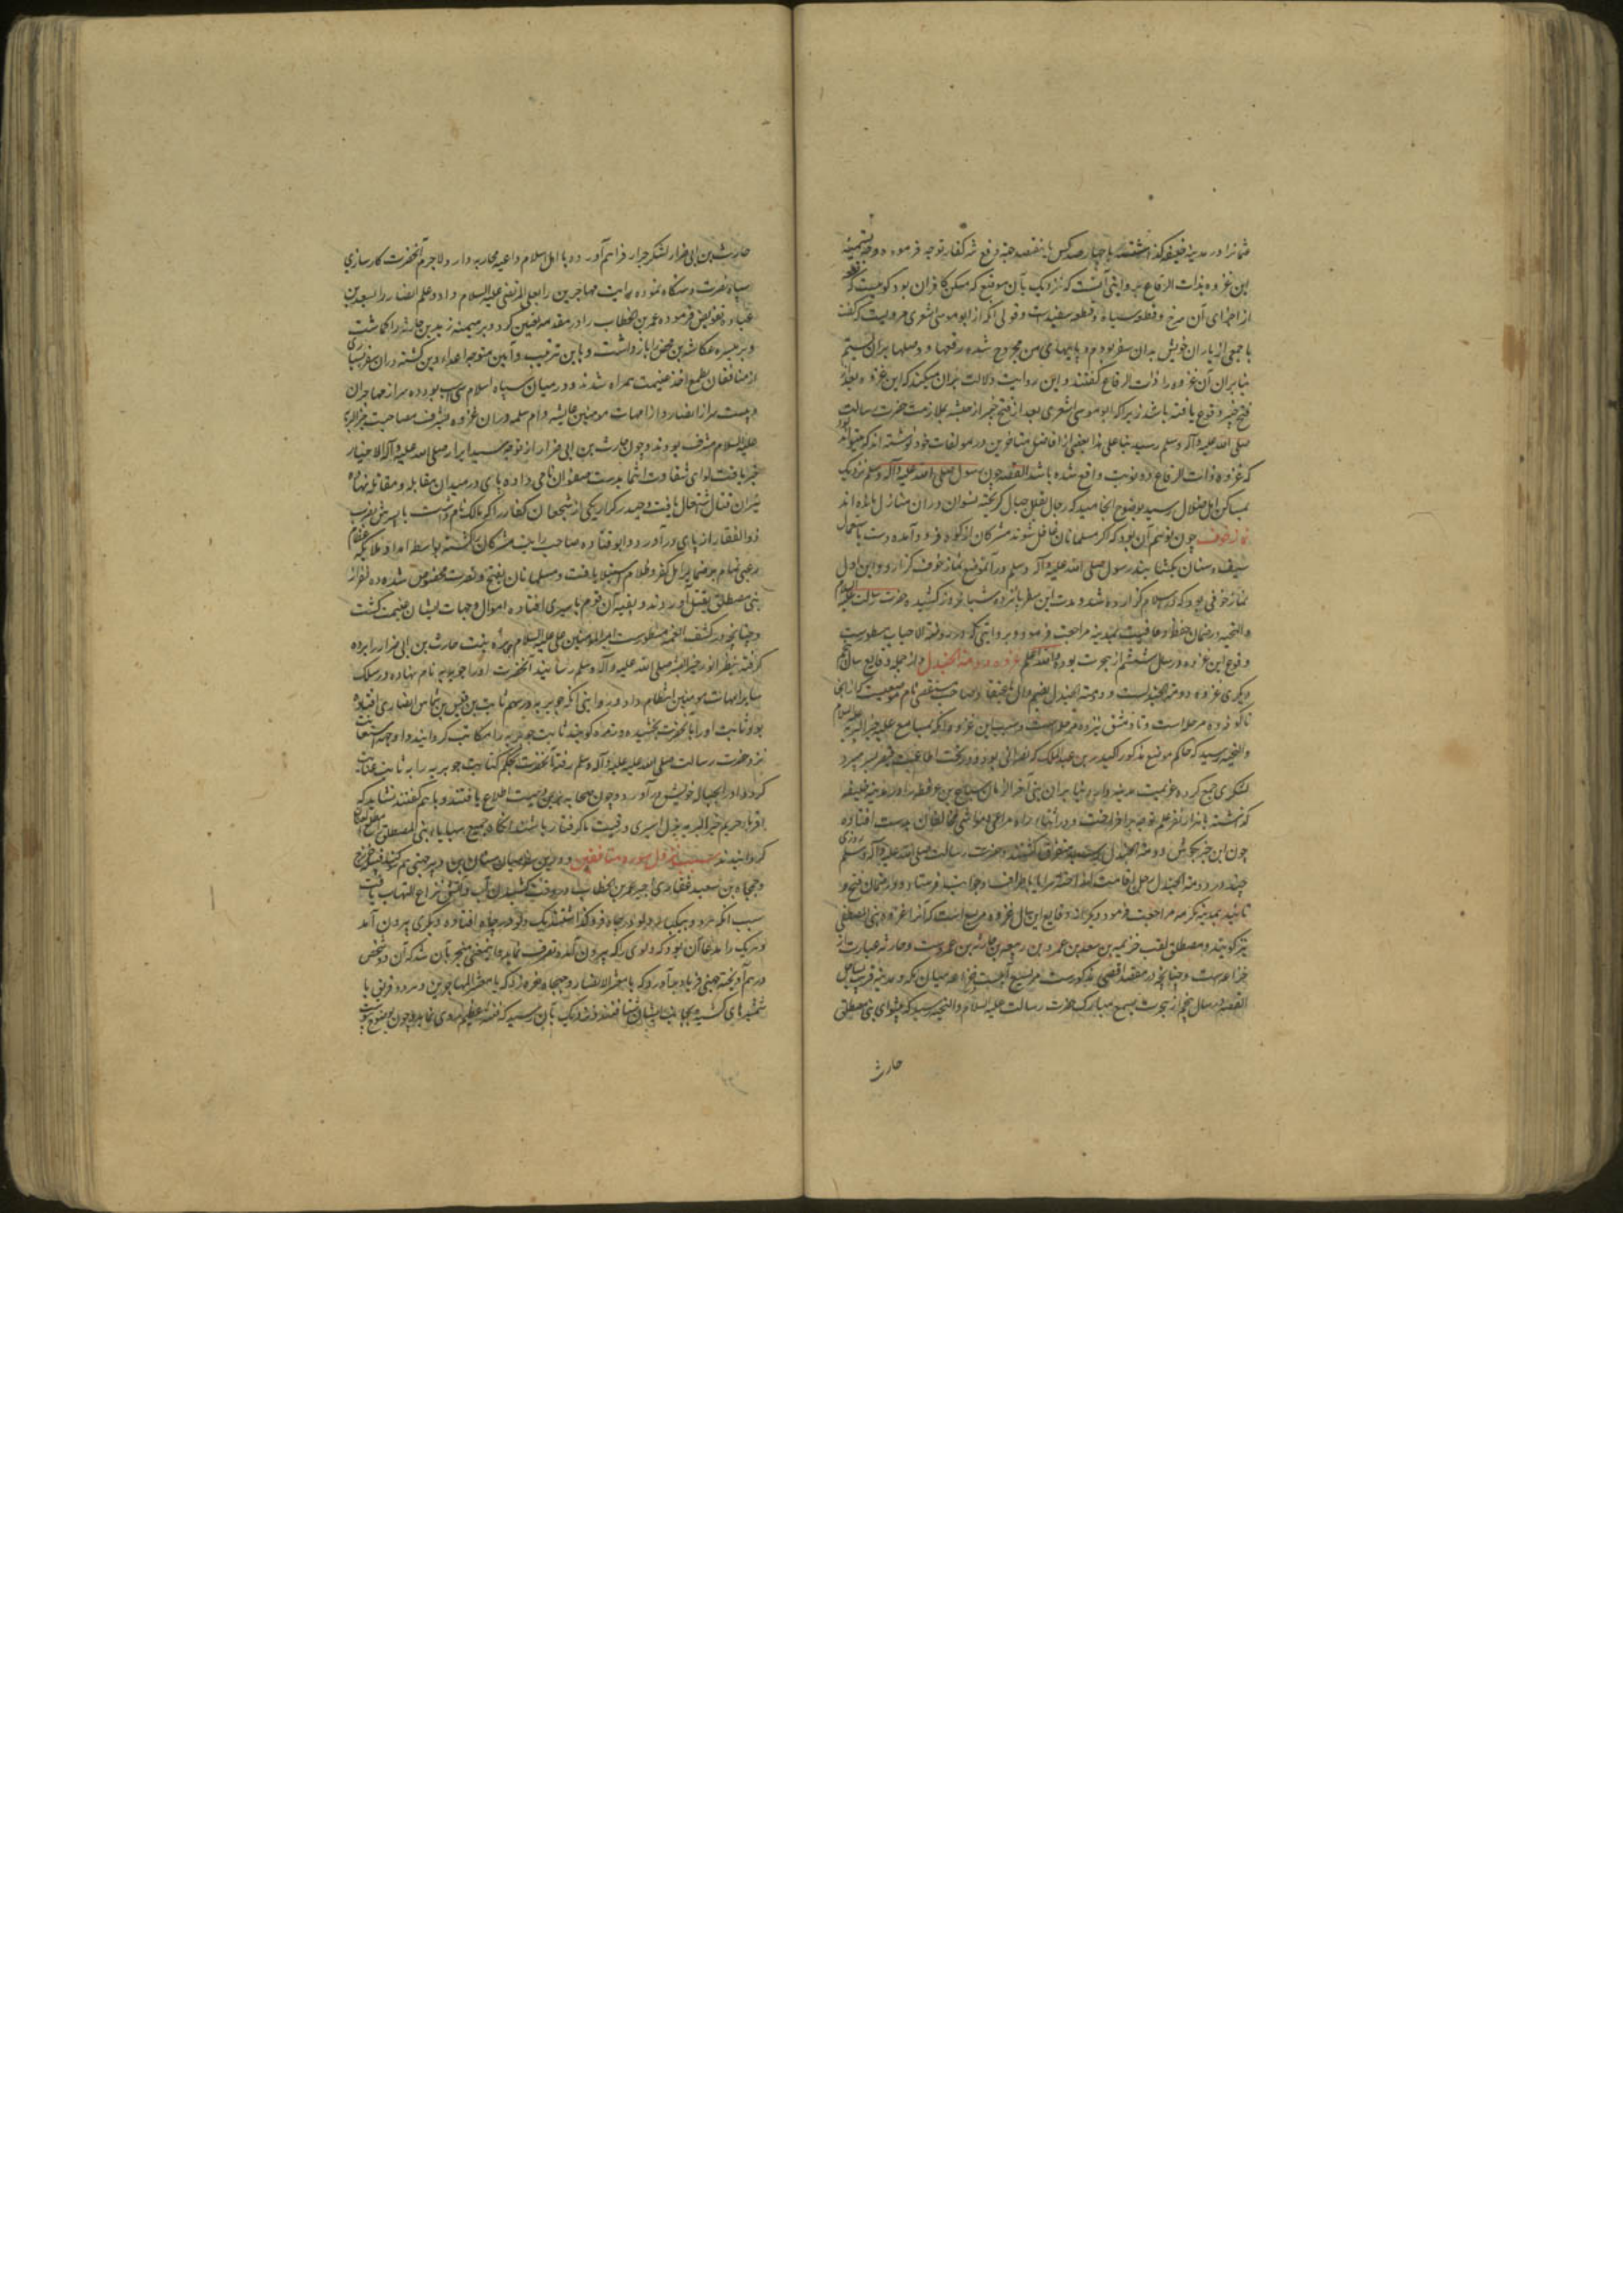 عثمانرا در مدینه خلیفه گذاشته با چهارصد کس یا هفتصد جهة دفع شر کفار توجه فرموده و وجه تسمیه
این غزوه بذات الرقاع بروایتی آنست که نزدیک بآن موضع که مسکن کافران بود کوهیست که بعضی
از اجزای آن سرخ و قطعه سیاه و قطعه سفیدست و قولی آنکه از ابو موسی اشعری مرویست که گفت
با جمعی از یاران خویش بدان سفر بودم و پایهای من مجروح شده رقعها و وصلها بران بستیم
بنا بران آن غزوه را ذات الرقاع گفتند و این روایت دلالت بران میکند که این غزوه بعد از
فتح خیبر وقوع یافته باشد زیرا که ابو موسی اشعری بعد از فتح خیبر از حبشه بملازمت حضرت رسالت
صلی الله علیه وآله وسلم رسید بنا علی هذا بعضی از افاضل متاخرین در مولفات خود نوشته اند که میتواند بود
که غزوه ذات الرقاع دو نوبت واقع شده باشد القصه چون رسول صلی الله علیه وآله وسلم نزدیک
بمساکن اهل ضلال رسید بوضوح انجامید که رجال بقلل جبال گریخته نسوان دران منازل مانده اند
نماز خوف چون توهم آن بود که اگر مسلمانان غافل شوند مشرکان از کوه فرود آمده دست باستعمال
سیف و سنان بگشایند رسول صلی الله علیه وآله وسلم در آنموضع نماز خوف گزارد و این اول
نماز خوفی بود که در اسلام گزارده شد و مدت این سفر پانزده شبانه روز کشیده حضرت رسالت علیه السلام
والتحیه در ضمان حفظ و عافیت بمدینه مراجعت فرمود و بروایتی که در روضة الاحباب مسطورست
وقوع این غزوه در سال ششم از هجرت بوده والله اعلم غزوه دومة الجندل و از جمله وقایع سال پنجم
دیگری غزوه دومة الجندلست و دومة الجندل بضم دال نام موضعیست که از آنجا
تا کوفه ده مرحله است و تا دمشق نیز ده مرحله است و سبب این غزوه آنکه بمسامع علیه خیر البریه علیه السلام
والتحیه رسید که حاکم موضع مذکور اکیدر بن عبد الملک که نصرانی بود و در تحت اطاعت قیصر بسر میبرد
لشکری جمع کرده عزیمت مدینه دارد بنا بران نبی آخر الزمان سباع بن عرفطه را در مدینه خلیفه
گذاشته با هزار نفر علم توجه برافراخت و در اثناء راه مراعی و مواشی مخالفان بدست افتاده
چون این خبر بگوش دومة الجندل رسید متفرق گشتند و حضرت رسالت صلی الله علیه وآله وسلم روزی
چند در دومة الجندل رحل اقامت انداخته سرایا باطراف و جوانب فرستاد و در ضمان فتح و
تایید بمدینه مکرمه مراجعت فرمود و دیگر از وقایع این سال غزوه مریسیع است که آنرا غزوه بنی المصطلق
نیز گویند و مصطلق لقب خزیمه بن سعد بن عمرو بن ربیعه بن حارثه بن عمروست و حارثه عبارت از
خزاعه است و چنانچه در مقصد اقصی مذکورست مریسیع آبیست خزاعه میان مکه و مدینه قریب بساحل
القصه در سال پنجم از هجرت بسمع مبارک حضرت رسالت علیه السلام والتحیه رسید که پیشوای بنی مصطلق
حارث
حارث بن ابی ضرار لشکر جرار فراهم آورده با اهل اسلام داعیه محاربه دارد لاجرم آنحضرت کارسازی
سپاه نصرت دستگاه نموده رایت مهاجرین را بعلی المرتضی علیه السلام داد و علم انصار را بسعد بن
عباده تفویض فرموده عمر بن الخطاب را در مقدمه تعیین کرد و بر میمنه زید بن حارثه را گماشت
و بر میسره عکاشه بن محصن را بازداشت و باین ترتیب و آیین متوجه اعداء دین گشته دران سفر بسیاری
از منافقان بطمع اخذ غنیمت همراه شدند و در میان سپاه اسلام سی اسب بود ده سر از مهاجران
و بیست سر از انصار و از امهات مومنین عایشه و ام سلمه دران غزوه بشرف مصاحبت خیر البریه
علیه السلام مشرف بودند و چون حارث بن ابی ضرار از توجه سید ابرار صلی الله علیه وآله الاخیار
خبر یافت لوای شقاوت انتما بدست صفوان نامی داده پای در میدان مقابله و مقاتله نهاد
نیران قتال اشتعال یافت و حیدر کرار یکی از شجعان کفار را که مالک نام داشت با پسرش بضرب
ذوالفقار از پای درآورد و ابو قتاده صاحب رایت مشرکان را کشته بواسطه امداد ملایکه عظام
رعبی تمام بر ضمایر اهل کفر و ظلام استیلا یافت و مسلمانان بفتح و نصرت مخصوص شده ده نفر از
بنی مصطلق بقتل آوردند و بقیه آن قوم باسیری افتاده اموال و جهات ایشان غنیمت گشت
و چنانچه در کشف الغمه مسطورست امیر المومنین علی علیه السلام بره بنت حارث بن ابی ضرار را برده
گرفته بنظر انور خیر البشر صلی الله علیه وآله وسلم رسانید آنحضرت او را جویریه نام نهاده در سلک
سایر امهات مومنین انتظام داد و بروایتی آنکه جویریه در سهم ثابت بن قیس بن شماس انصاری افتاده
بود و ثابت او را بآنحضرت بخشیده و زمره گویند ثابت جویریه را مکاتب گردانید و او جهت استعانت
نزد حضرت رسالت صلی الله علیه وآله وسلم رفته آنحضرت بحکم کتابت جویریه را به ثابت عنایت
کرده او را بحباله خویش درآورد و چون صحابه برین وصیت اطلاع یافتند و باهم گفتند نشاید که
اقرباء حریم خیر البریه بذل اسیری و رقیت گرفتار باشند آنگاه جمیع سبایاء بنی المصطلق را مطلق العنان
گردانیدند سبب نزول سوره منافقین و درین سفر میان سنان بن وبر جهنی هم سوگند قبیله خزرج
و جهجاه بن سعید غفاری اجیر عمر بن الخطاب در وقت کشیدن آب آتش نزاع التهاب یافت
سبب آنکه هردو بیکبار دلو در چاه فرو گذاشتند یک دلو در چاه افتاده و دیگری بیرون آمد
و هریک را مدعا آن بود که دلوی را که بیرون آمده تصرف نماید و این معنی منجر بآن شد که آن دو شخص
درهم آویخته جهنی فریاد برآورد که یا معشر الانصار و جهجاه نعره زد که یا معشر المهاجرین و هردو فریق با
شمشیرهای کشیده بجانب ایشان شتافتند و نزدیک بآن رسید که فتنه عظیم روی نماید و چون بوضوح پیوست